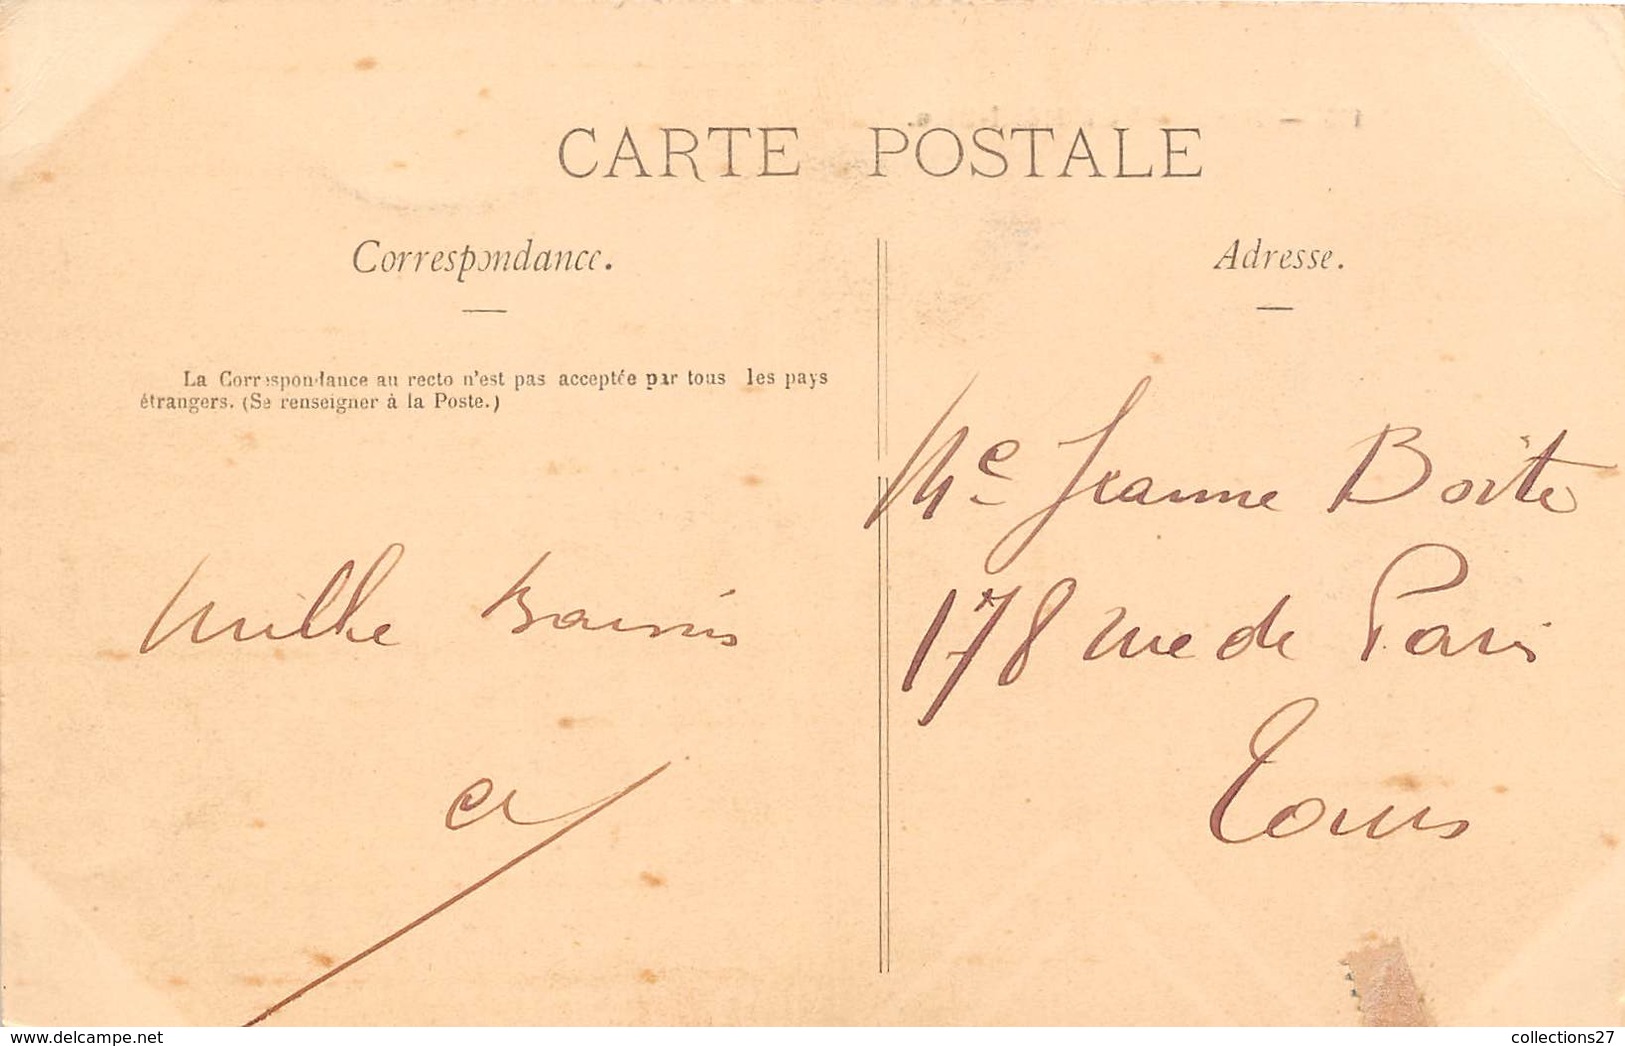 CARTE POSTALE
Correspondance.
La Correspondance au recto n'est pas acceptée par tous les pays
étrangers. (Se renseigner à la Poste.)
Mille Baisers
Adresse.
Mle Jeanne Boite
178 rue de Paris
Tours
www.delcampe.net
collections27